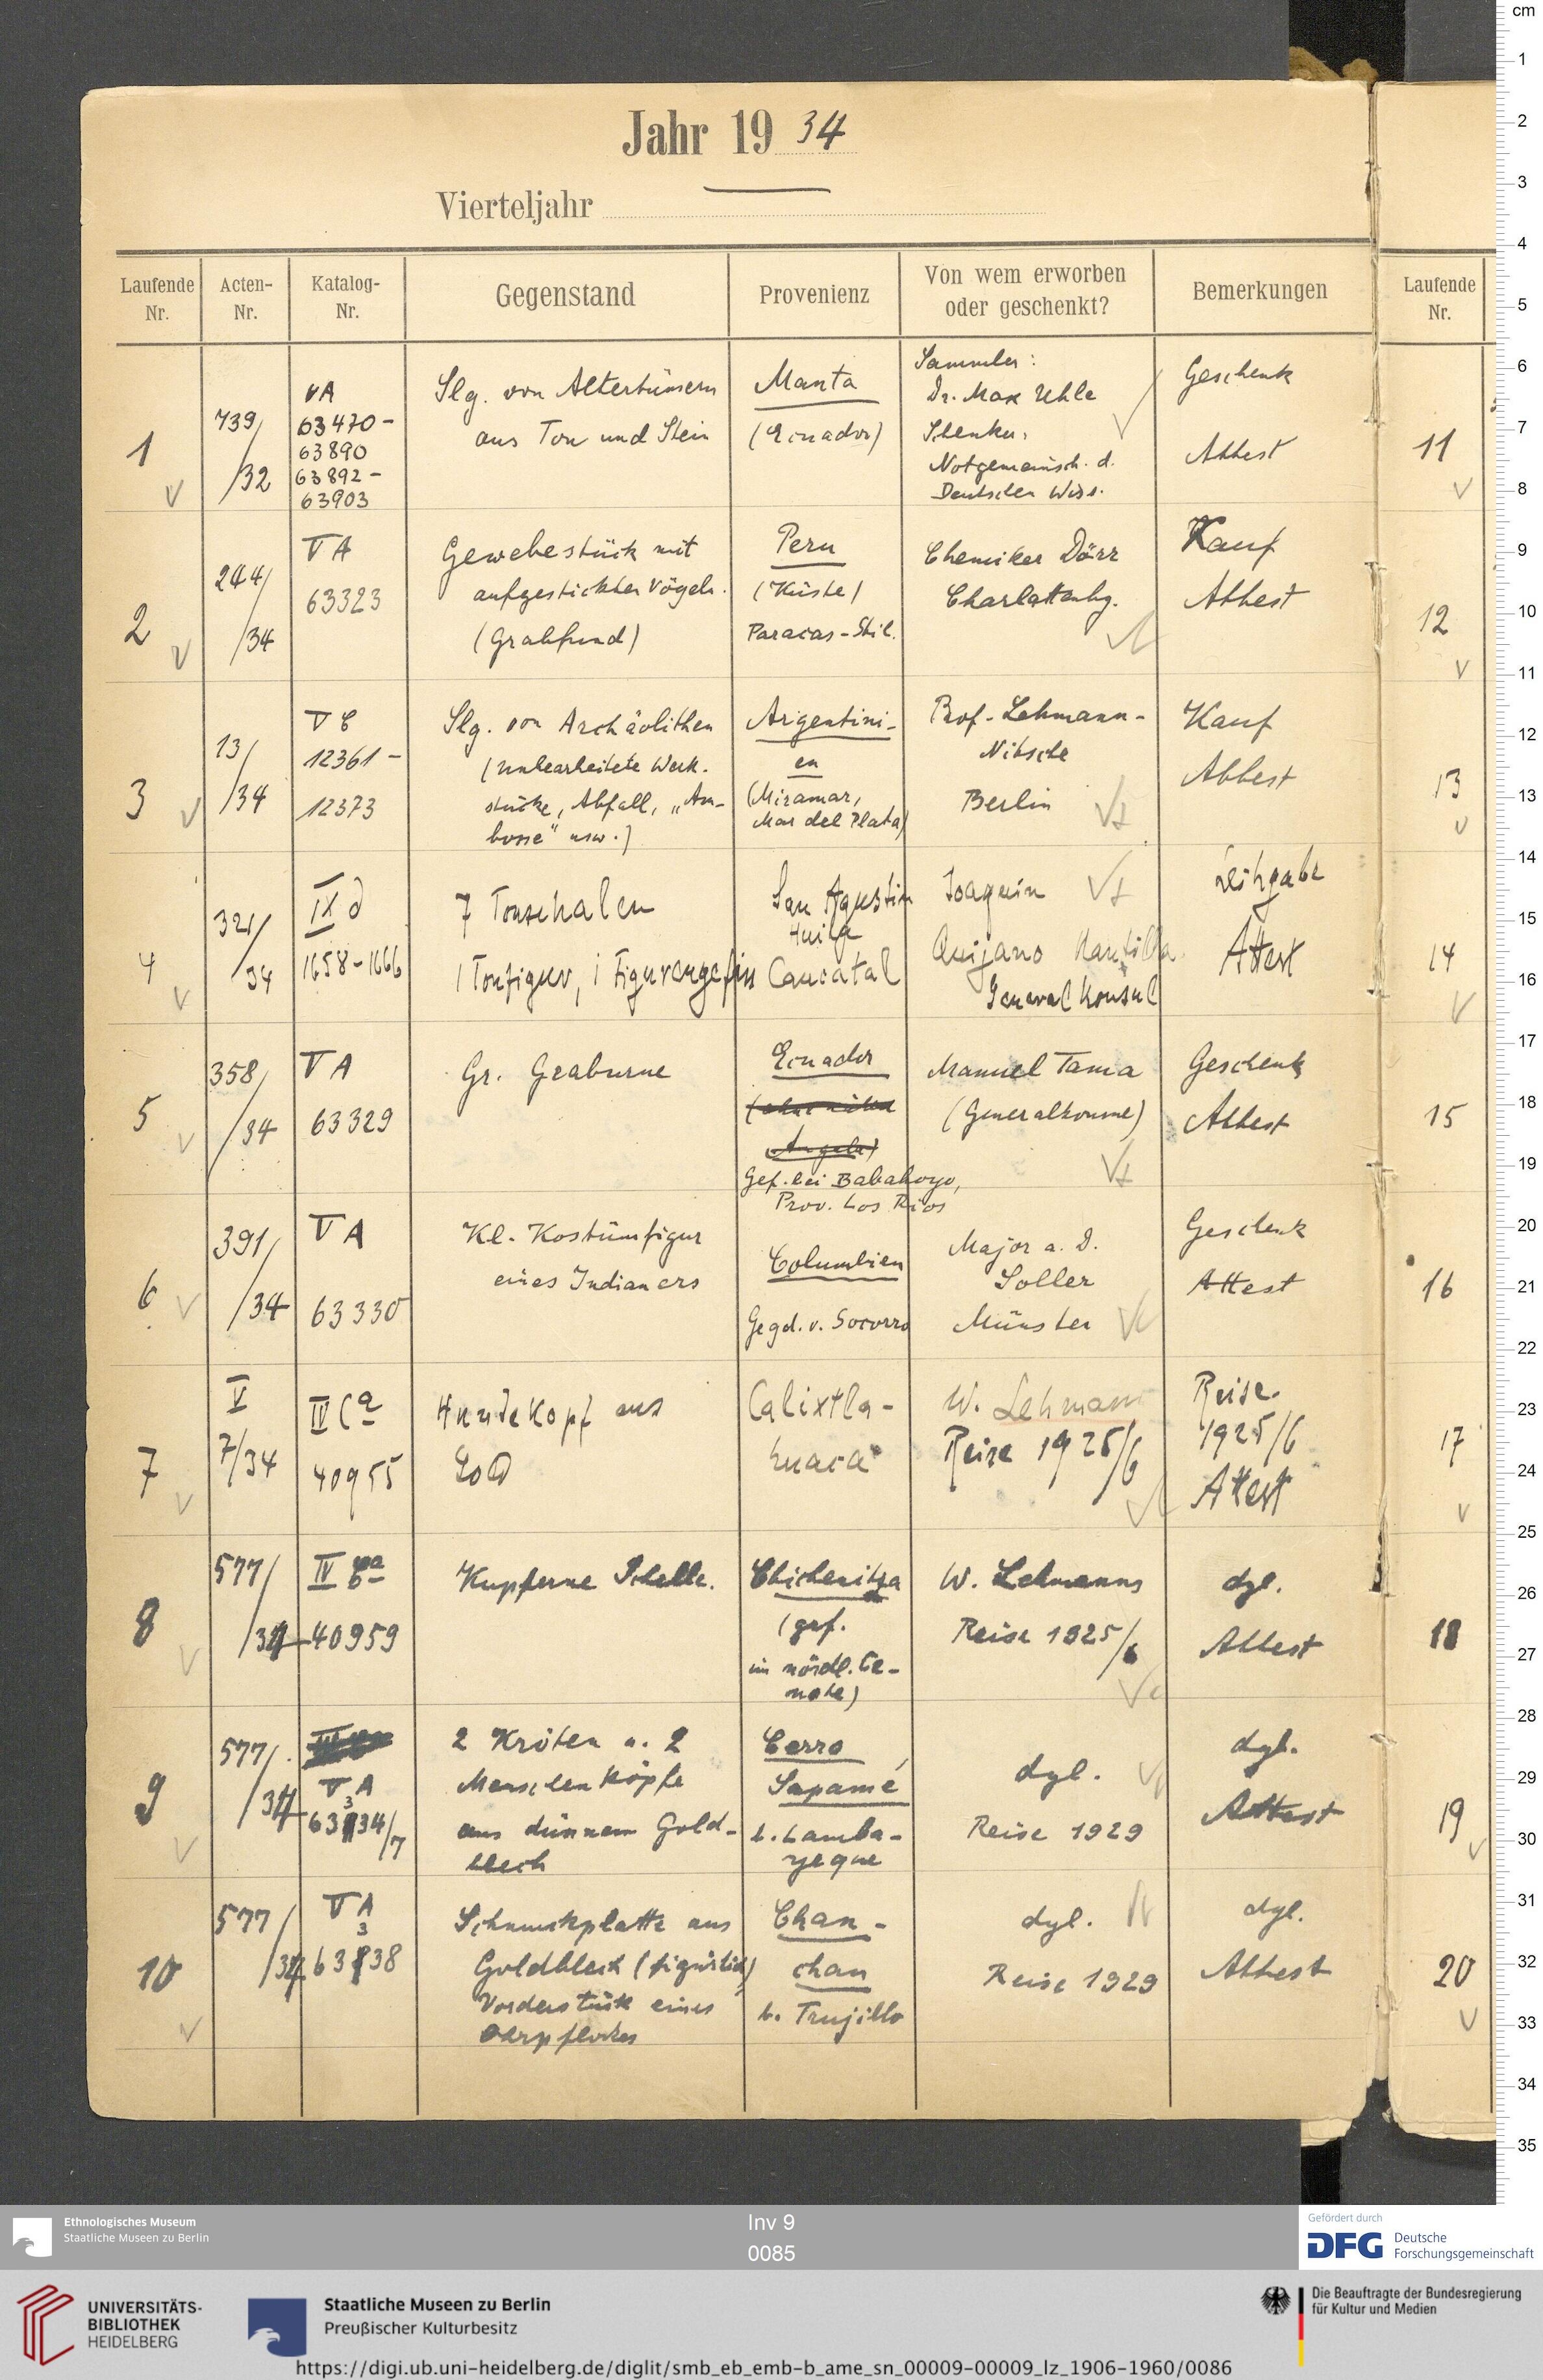 Jahr 19 34
Vierteljahr
Laufende Nr.
Acten-Nr.
Katalog-Nr.
Gegenstand
Provenienz
Von wem erworben oder geschenkt?
Bemerkungen
Laufende Nr.
1
739/
/32
VA
63470-
63890
63892-
63903
Slg. von Altertümern
aus Ton und Stein
Manta
(Ecuador)
Sammler:
Dr. Max Uhle
Schenker:
Notgemeinsch. d.
Deutschen Wiss.
Geschenk
Attest
11
2
244/
/34
VA
63323
Gewebestück mit
aufgestickten Vögeln.
(Grabfund)
Peru
(Küste)
Paracas-Stil.
Chemiker Dörr
Charlottenbg.
Kauf
Attest
12
3
13/
/34
VC
12361-
12373
Slg. von Archäolithen
(unbearbeitete Werk-
stücke, Abfall, „Am-
bosse" usw.)
Argentini-
en
(Miramar,
Mar del Plata)
Prof. Lehmann-
Nitsche
Berlin
Kauf
Attest
13
4
321/
34
IX d
1658-1666
7 Tonschalen
1 Tonfigur, 1 Figurengefäss
San Agustin
Huila
Caucatal
Joaquin
Quijano Mantilla
General Konsul
Leihgabe
Attest
14
5
358/
/34
VA
63329
Gr. Graburne
Ecuador
Gef. bei Babahoyo,
Prov. Los Rios
Manuel Tama
(Generalkonsul)
Geschenk
Attest
15
6
391/
/34
VA
63330
Kl. Kostümfigur
eines Indianers
Columbien
Gegd. v. Socorro
Major a. D.
Soller
Münster
Geschenk
Attest
16
7
V
7/34
IV Ca
40955
Hundekopf aus
Gold
Calixtla-
huaca
W. Lehmann
Reise 1925/6
Reise
1925/6
Attest
17
8
577/
/34
IV Ca
40959
Kupferne Schelle.
Chichenitza
(gef.
im nördl. Ce-
note)
W. Lehmanns
Reise 1925/6
dgl.
Attest
18
9
577/
/34
VA
3
63134/7
2 Kröten u. 2
Menschenköpfe
aus dünnem Gold-
blech
Cerro
Sapamé
b. Lamba-
yeque
dgl.
Reise 1929
dgl.
Attest
19
10
577/
/34
VA
3
63138
Schmuckplatte aus
Goldblech (figürlich)
Vorderstück eines
Ohrpflockes
Chan-
chan
b. Trujillo
dgl.
Reise 1929
dgl.
Attest
20
cm
1
2
3
4
5
6
7
8
9
10
11
12
13
14
15
16
17
18
19
20
21
22
23
24
25
26
27
28
29
30
31
32
33
34
35
Ethnologisches Museum
Staatliche Museen zu Berlin
Inv 9
0085
Gefördert durch
DFG Deutsche
Forschungsgemeinschaft
UNIVERSITÄTS-
BIBLIOTHEK
HEIDELBERG
Staatliche Museen zu Berlin
Preußischer Kulturbesitz
Die Beauftragte der Bundesregierung
für Kultur und Medien
https://digi.ub.uni-heidelberg.de/diglit/smb_eb_emb-b_ame_sn_00009-00009_lz_1906-1960/0086